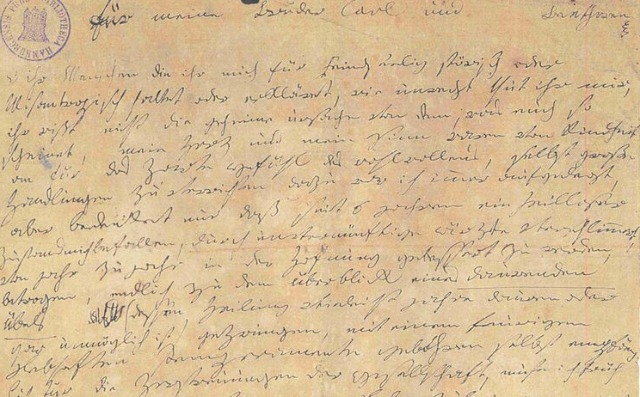 für meine Brüder Carl und Beethowen
BIBLIOTHECA HAMBURGENSIS
O ihr Menschen die ihr mich für Feindseelig störisch oder
Misantropisch haltet oder erkläret, wie unrecht thut ihr mir,
ihr wißt nicht die geheime ursache von dem, was euch so
scheinet, mein Herz und mein Sinn waren von Kindheit
an für das Zarte Gefühl des wohlwollens, selbst große
Handlungen zu verrichten dazu war ich imer aufgelegt
aber bedenket nur daß seit 6 jahren ein heilloser
Zustand mich befallen, durch unvernünftige ärzte verschlimmert
von jahr zu jahr in der Hofnung gebessert zu werden,
betrogen, endlich zu dem überblick eines daurenden
Übels dessen Heilung vieleicht jahre dauren oder
gar unmöglich ist gezwungen, mit einem feurigen
Lebhaften Temperamente gebohren selbst empfäng
lich für die Zerstreuungen der gesellschaft, muste ich früh